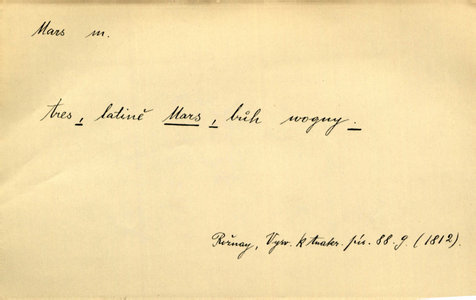 Mars m.
tres, latině Mars, bůh wogny.
Rožnay, Vysv. k Anakr. pís. 88. 9. (1812).